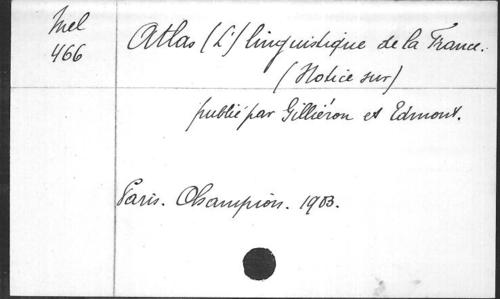 Mel
466
Atlas (L') linguistique de la France.
(Notice sur)
publié par Gilliéron et Edmont.
Paris. Champion. 1903.